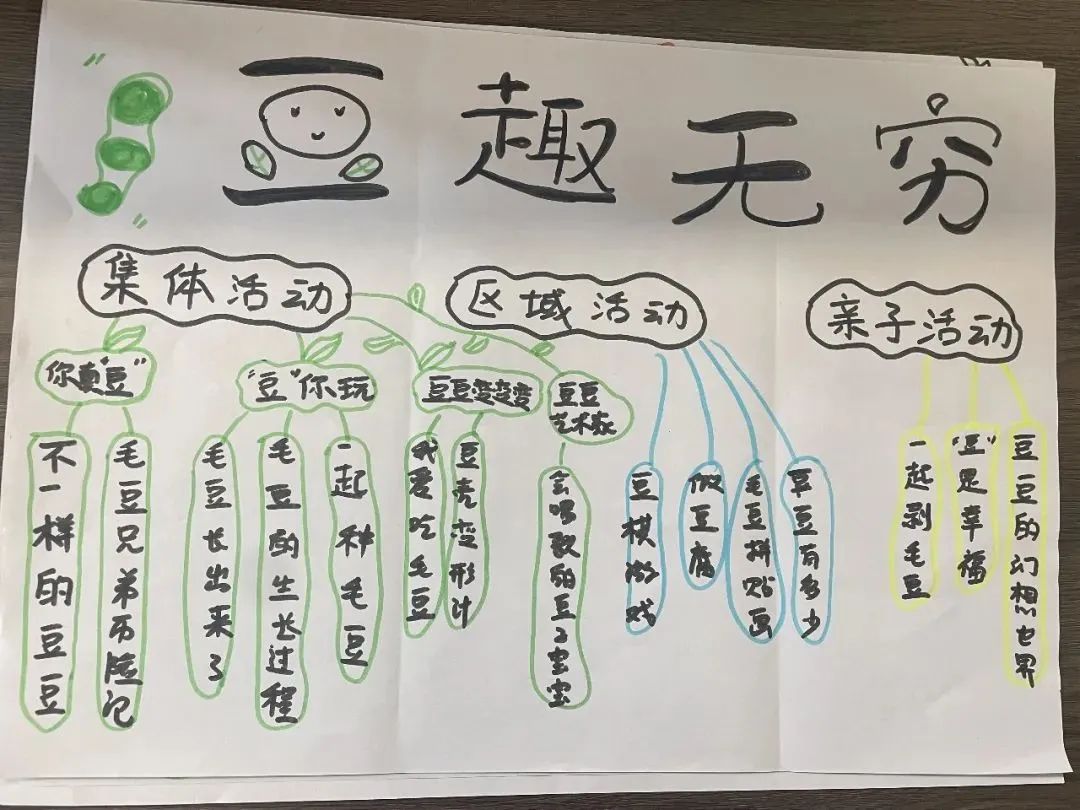 豆趣无穷
集体活动
区域活动
亲子活动
你真“豆”
“豆”你玩
豆豆变变变
豆豆
艺术家
不一样的豆豆
毛豆兄弟历险记
毛豆长出来了
毛豆的生长过程
一起种毛豆
我爱吃毛豆
豆壳变形计
会唱歌的豆子宝宝
豆棋游戏
做豆腐
毛豆拼贴画
豆有多少
一起剥毛豆
“豆”是幸福
豆豆的幻想世界